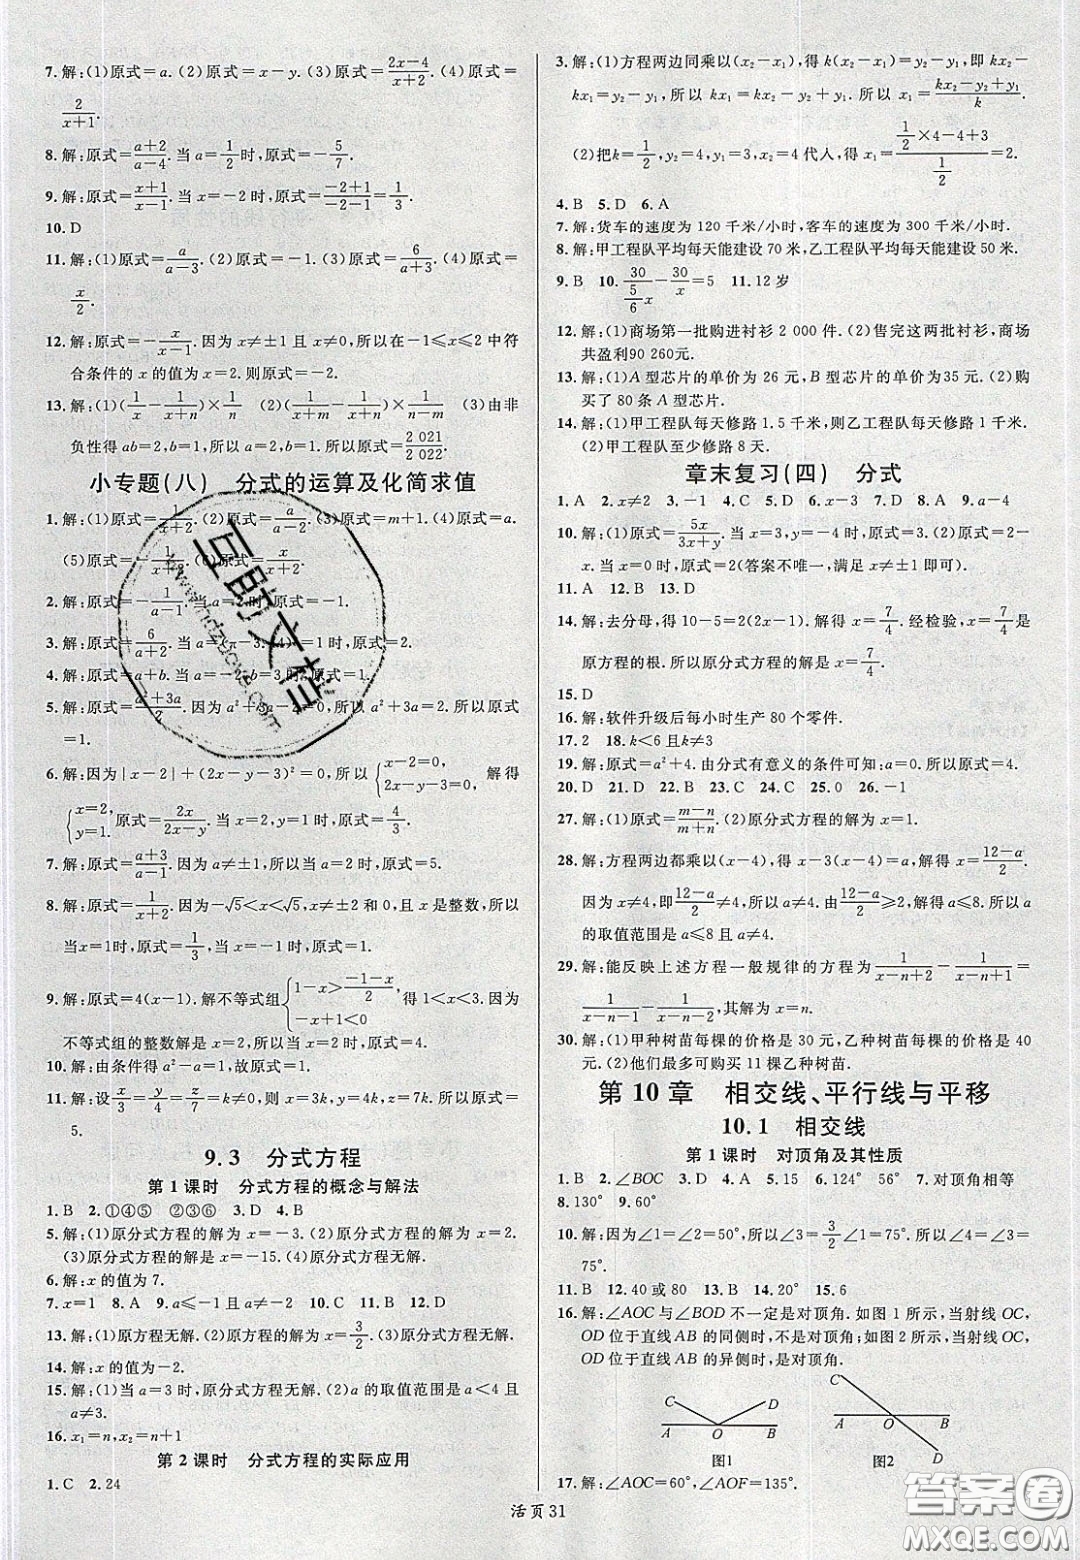 7. 解:(1)原式=a. (2)原式=x-y. (3)原式=\frac{2x-4}{x+2}. (4)原式=
\frac{2}{x+1}.
8. 解:原式=\frac{a+2}{a-4}. 当 a=\frac{1}{2}时,原式=-\frac{5}{7}.
9. 解:原式=\frac{x+1}{x-1}. 当 x=-2 时,原式=\frac{-2+1}{-2-1}=\frac{1}{3}.
10. D
11. 解:(1)原式=\frac{a}{a-3}. (2)原式=-1. (3)原式=\frac{6}{a+3}. (4)原式=
\frac{x}{2}.
12. 解:原式=-\frac{x}{x-1}. 因为 x≠±1 且 x≠0,所以在-1≤x≤2 中符
合条件的 x 的值为 x=2. 则原式=-2.
13. 解:(1)(\frac{1}{n}-\frac{1}{x+n})×\frac{1}{n} (2)(\frac{1}{x+m}-\frac{1}{x+n})×\frac{1}{n-m} (3)由非
负性得 ab=2,b=1,所以 a=2,b=1. 所以原式=\frac{2 021}{2 022}.
小专题(八) 分式的运算及化简求值
1. 解:(1)原式=\frac{1}{x+2}. (2)原式=\frac{a}{a-2}. (3)原式=m+1. (4)原式=a.
(5)原式=-\frac{1}{x+2}. (6)原式=\frac{x}{x+2}.
2. 解:原式=-\frac{1}{a-1}. 当 a=2 时,原式=-1.
3. 解:原式=\frac{6}{a+3}. 当 a=-3. 原式=1.
4. 解:原式=a+b. 当 a=-2,b=3 时,原式=1.
5. 解:原式=\frac{a²+3a}{2}. 因为 a²+3a-2=0,所以 a²+3a=2. 所以原式
=1.
6. 解:因为|x-2|+(2x-y-3)²=0,所以{x-2=0, 2x-y-3=0. 解得
{x=2, y=1. 原式=\frac{2x}{2x-y}. 当 x=2,y=1 时,原式=\frac{4}{3}.
7. 解:原式=\frac{a+3}{a-1}. 因为 a≠±1,所以当 a=2 时,原式=5.
8. 解:原式=\frac{1}{x+2}. 因为-√5<x<√5,x≠±2 和 0,且 x 是整数,所以
当 x=1时,原式=\frac{1}{3},当 x=-1 时,原式=1.
9. 解:原式=4(x-1). 解不等式组{1-x>\frac{-1-x}{2}, -x+1<0 得 1<x<3. 因为
不等式组的整数解是 x=2,所以当 x=2 时,原式=4.
10. 解:由条件得 a²-a=1,所以原式=1.
11. 解:设\frac{x}{3}=\frac{y}{4}=\frac{z}{7}=k(k≠0),所以 x=3k,y=4k,z=7k. 所以原式=
5.
9.3 分式方程
第 1 课时 分式方程的概念与解法
1. B 2. ①④⑤ ②③⑥ 3. D 4. B
5. 解:(1)原分式方程的解为 x=-3. (2)原分式方程的解为 x=2.
(3)原分式方程的解是 x=-15. (4)原分式方程无解.
6. 解:x 的值为 7.
7. x=1 8. A 9. a≤-1 且 a≠-2 10. C 11. B 12. D
13. 解:(1)原方程无解. (2)原分式方程的解为\frac{3}{2}. (3)原分式方程无解.
14. 解:x 的值为-2.
15. 解:(1)当 a=3 时,原分式方程无解. (2)a 的取值范围是 a<4 且
a≠3.
16. x₁=n,x₂=n+1
第 2 课时 分式方程的实际应用
1. C 2. 24
3. 解:(1)方程两边同乘以(x₂-x₁),得 k(x₂-x₁)=y₂-y₁,即 kx₂-
kx₁=y₂-y₁,所以 kx₁=kx₂-y₂+y₁. 所以 x₁=\frac{kx₂-y₂+y₁}{k}.
(2)把k=\frac{1}{2},y₂=4,y₁=3,x₂=4 代人,得 x₁=\frac{\frac{1}{2}×4-4+3}{\frac{1}{2}}=2.
4. B 5. D 6. A
7. 解:货车的速度为 120 千米/小时,客车的速度为 300 千米/小时.
8. 解:甲工程队平均每天能建设 70 米,乙工程队平均每天能建设 50 米.
9. B 10. \frac{30}{\frac{5}{6}x}-\frac{30}{x}=5 11. 12 岁
12. 解:(1)商场第一批购进衬衫 2 000 件. (2)售完这两批衬衫,商场
共盈利90 260元.
13. 解:(1)A 型芯片的单价为 26 元,B 型芯片的单价为35 元. (2)购
买了 80 条 A 型芯片.
14. 解:(1)甲工程队每天修路 1.5 千米,则乙工程队每天修路 1 千米.
(2)甲工程队至少修路 8 天.
章末复习(四) 分式
1. A 2. x≠2 3. -1 4. C 5. C 6. -3 7. D 8. A 9. a-4
10. 解:(1)原式=\frac{5x}{3x+y}. 当 x=3,y=-4 时,原式=3. (2)原式=2-
x. 当 x=0时,原式=2(答案不唯一,满足 x≠±1 即可).
11. A 12. B 13. D
14. 解:去分母,得 10-5=2(2x-1). 解得 x=\frac{7}{4}. 经检验,x=\frac{7}{4}是
原方程的根. 所以原分式方程的解是 x=\frac{7}{4}.
15. D
16. 解:软件升级后每小时生产 80 个零件.
17. 2 18. k<6 且k≠3
19. 解:原式=a²+4. 由分式有意义的条件可知:a=0. 所以原式=4.
20. D 21. D 22. B 23. C 24. C 25. 0 26. -1
27. 解:(1)原式=\frac{m-n}{m+n}. (2)原分式方程的解为 x=1.
28. 解:方程两边都乘以(x-4),得 x-3(x-4)=a. 解得 x=\frac{12-a}{2}.
因为 x≠4,即\frac{12-a}{2}≠4,所以 a≠4. 由\frac{12-a}{2}≥2,解得 a≤8. 所以 a
的取值范围是 a≤8 且 a≠4.
29. 解:能反映上述方程一般规律的方程为\frac{1}{x-n+2}-\frac{1}{x-n+1}=
\frac{1}{x-n-1}-\frac{1}{x-n-2},其解为 x=n.
30. 解:(1)甲种树苗每棵的价格是 30 元,乙种树苗每棵的价格是 40
元. (2)他们最多可购买 11 棵乙种树苗.
第 10 章 相交线、平行线与平移
10.1 相交线
第 1 课时 对顶角及其性质
1. B 2. ∠BOC ∠AOD 3. A 4. D 5. 15 6. 124° 56° 7. 对顶角相等
8. 130° 9. 60°
10. 解:因为∠1=∠2,∠3=\frac{3}{2}∠1=75°,所以∠1=50°. 所以∠4=∠3=
75°.
11. B 12. 40 或 80 13. B 14. 20° 15. 6
16. 解:∠AOC 与∠BOD 不一定是对顶角. 如图 1 所示,当射线 OC,
OD 位于直线 AB 的同侧时,不是对顶角;如图 2 所示,当射线OC,
OD 位于直线 AB 的异侧时,是对顶角.
C D
A O B
图1
C
A O B
D
图2
17. 解:∠AOC=60°,∠AOF=135°.
活页 31
互助文档
www.hdzuowen.com
答案圈
MXQE.COM